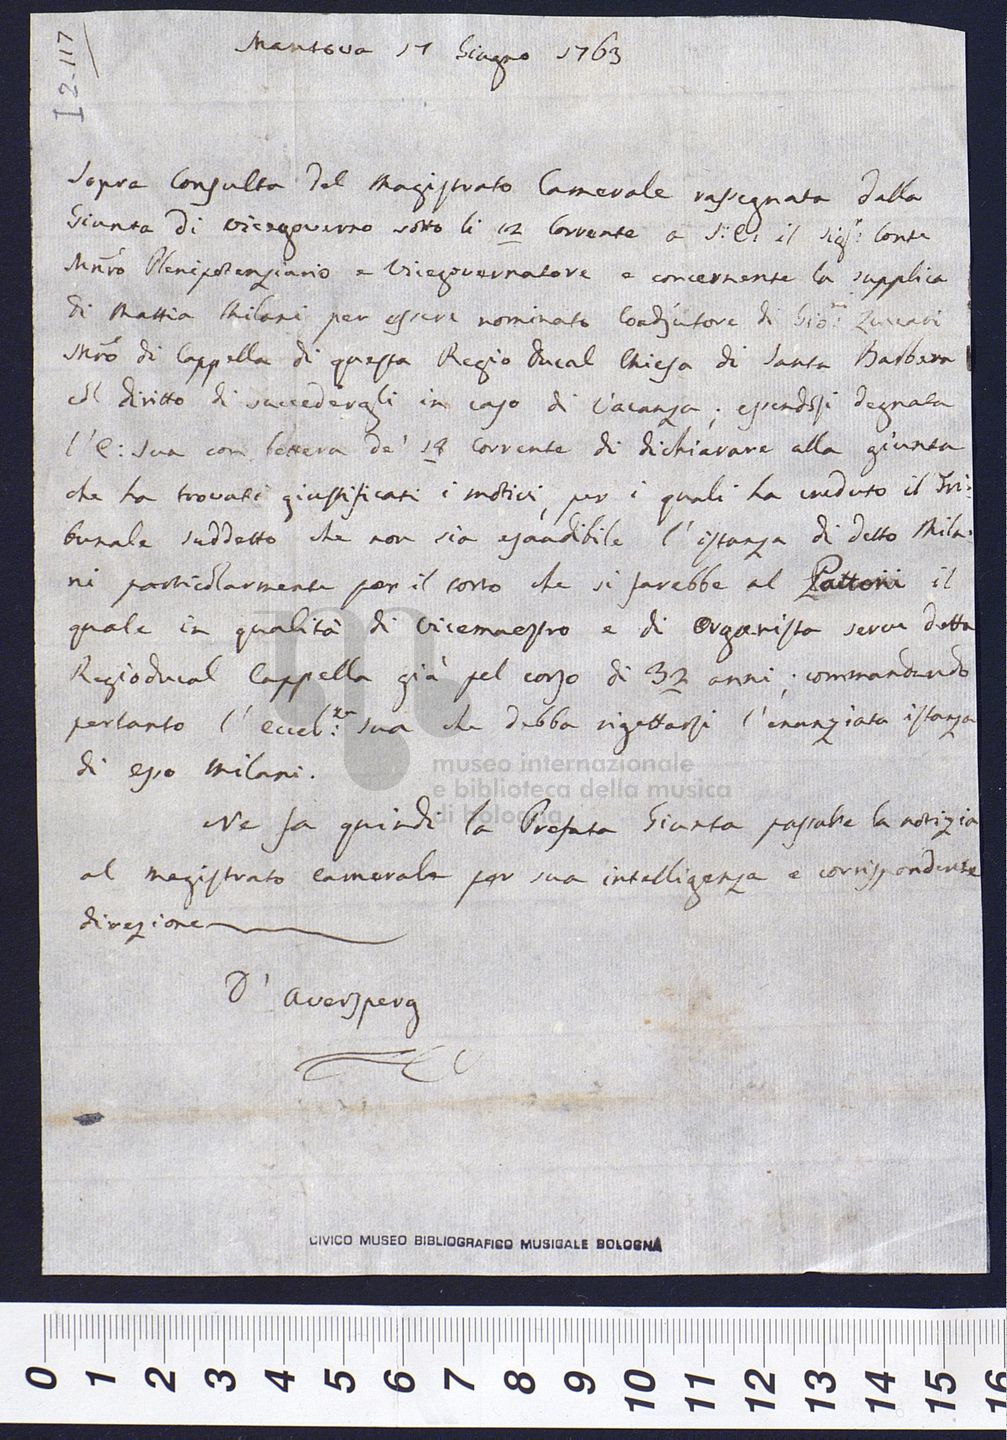 I 2-117
Mantova 17 Giugno 1763
Sopra Consulta del Magistrato Camerale rassegnata dalla
Giunta di vicegoverno sotto li 12 Corrente a S: E: il Sig.r Conte
Mnrõ Plenipotenziario e Vicegovernatore e concernente la supplica
di Mattia Milani per essere nominato Coadjutore di Gio: Zuccari
Mrõ di Cappella di questa Regio Ducal Chiesa di Santa Barbera
col diritto di succedergli in caso di Vacanza; essendosi degnata
l'E: Sua con lettera de' 14 Corrente di dichiarare alla giunta
che ha trovati giustificati i motivi, per i quali ha creduto il Tri:
bunale suddetto che non sia esaudibile l'istanza di detto Mila:
ni particolarmente per il torto che si farebbe al Pattoni il
quale in qualità di Vicemaestro e di Organista serve detta
Regioducal Cappella già pel corso di 32 anni; commandando
pertanto l'eccel:za sua che debba rigettarsi l'enunziata istanza
di esso Milani.
Ne fa quindi la Prefata Giunta passare la notizia
al magistrato camerale per sua intelligenza e corrispondente
direzione
D' Aversperg
museo internazionale
e biblioteca della musica
di bologna
CIVICO MUSEO BIBLIOGRAFICO MUSICALE BOLOGNA
0 1 2 3 4 5 6 7 8 9 10 11 12 13 14 15 16